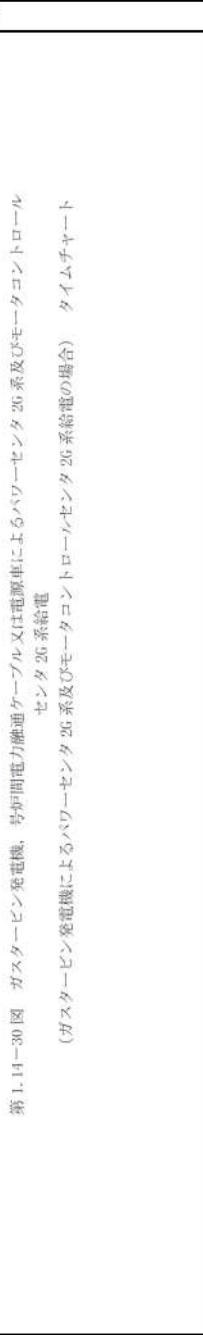 第 1.14－30 図　ガスタービン発電機，号炉間電力融通ケーブル又は電源車によるパワーセンタ 2G 系及びモータコントロール
センタ 2G 系給電
(ガスタービン発電機によるパワーセンタ 2G 系及びモータコントロールセンタ 2G 系給電の場合)　タイムチャート